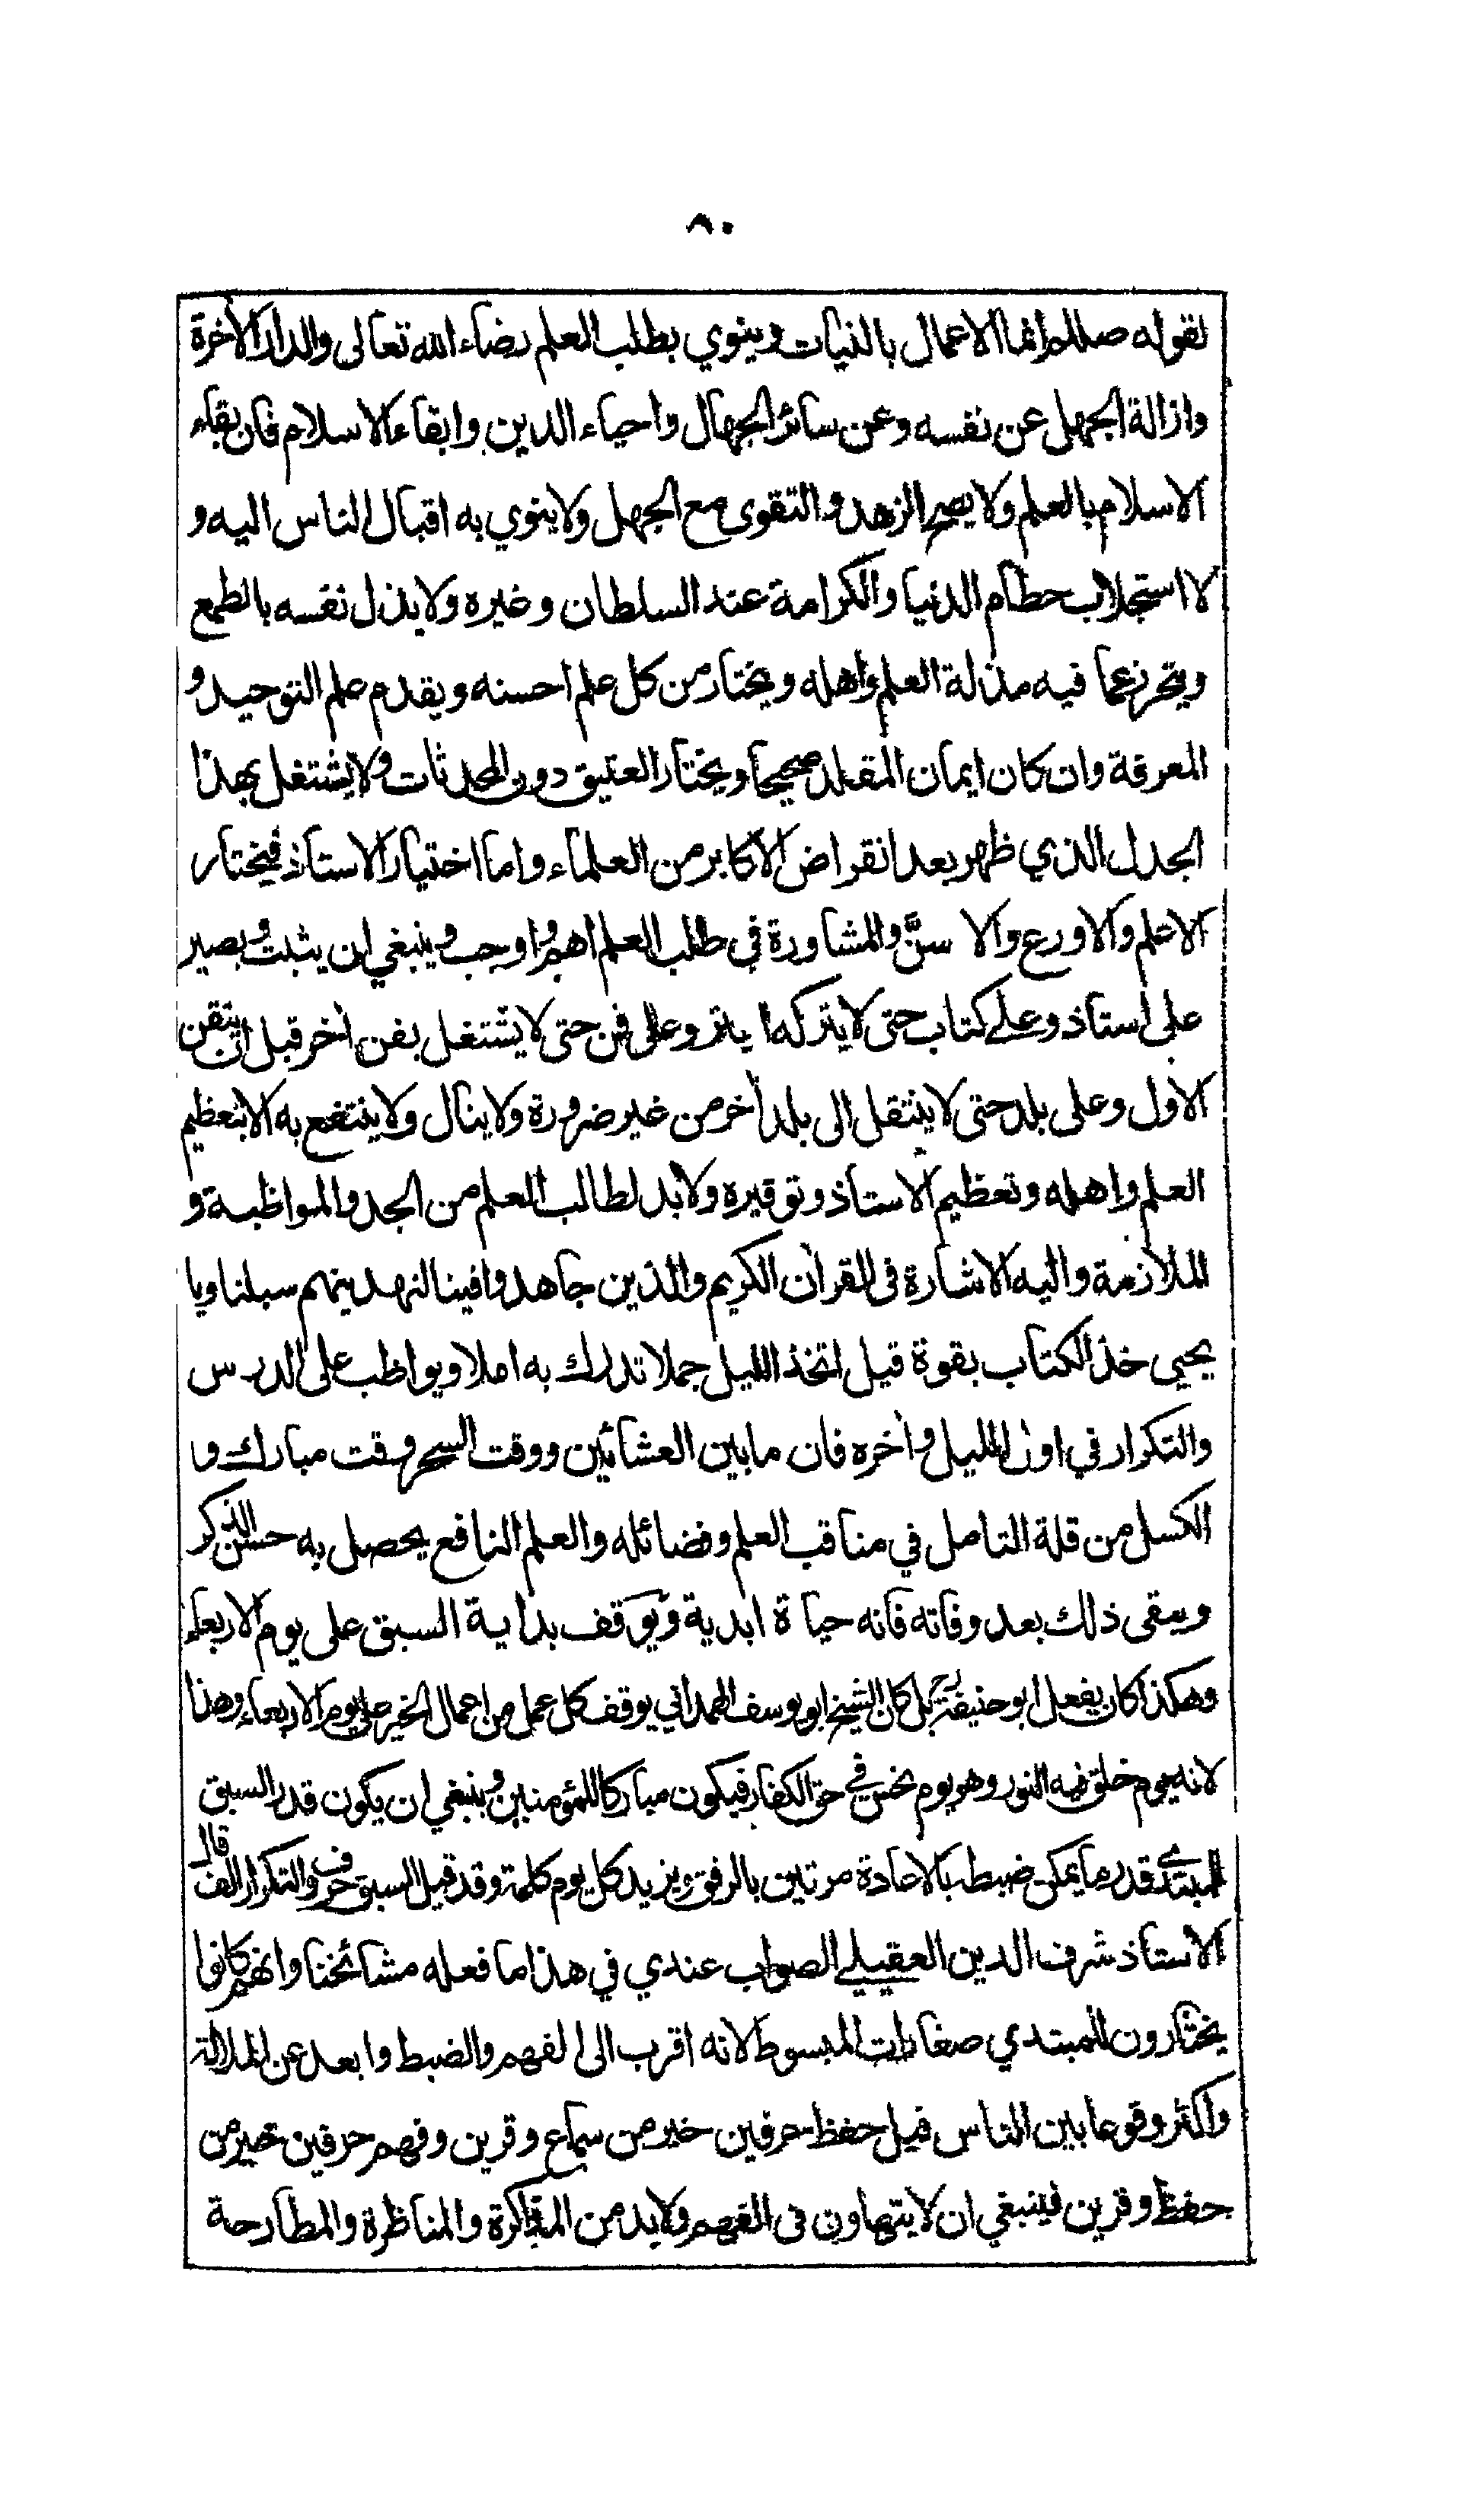 ٨٠
لقوله صللم انما الاعمال بالنيات وينوي بطلب العلم رضاء الله تعالى والدار الاخرة
وازالة الجهل عن نفسه وعن سائر الجهال واحياء الدين وابقاء الاسلام فان بقاء
الاسلام بالعلم ولا يصح الزهد والتقوى مع الجهل ولا ينوي به اقبال الناس اليه و
لا استجلاب حطام الدنيا والكرامة عند السلطان وغيره ولا يذل نفسه بالطمع
ويتحرز عما فيه مذلة العلم واهله ويختار من كل علم احسنه ويقدم علم التوحيد و
المعرفة وان كان ايمان المقلد صحيحا ويختار العتيق دون المحدثات ولا يشتغل بهذا
الجدل الذي ظهر بعد انقراض الاكابر من العلماء واما اختيار الاستاذ فيختار
الاعلم والاورع والا سنّ والمشاورة في طلب العلم اهم واوجب وينبغي ان يثبت ويصير
على استاذ وعلى كتاب حتى لا يتركه ابتر وعلى فن حتى لا يشتغل بفن اخر قبل ان يتقن
الاول وعلى بلد حتى لا ينتقل الى بلد اخر من غير ضرورة ولا ينال ولا ينتفع به الا بتعظيم
العلم واهله وتعظيم الاستاذ وتوقيره ولا بد لطالب العلم من الجد والمواظبة و
الملازمة واليه الاشارة في القران الكريم والذين جاهدوا فينا لنهدينهم سبلنا ويا
يحيى خذ الكتاب بقوة قيل اتخذ الليل جملا تدرك به املا ويواظب على الدرس
والتكرار في اول الليل واخره فان ما بين العشائين ووقت السحر وقت مبارك وا
الكسل من قلة التامل في مناقب العلم وفضائله والعلم النافع يحصل به حسن الذكر
ويبقى ذلك بعد وفاته فانه حياة ابدية ويوقف بداية السبق على يوم الاربعاء
وهكذا كان يفعل ابو حنيفة بل كان الشيخ ابو يوسف الهمداني يوقف كل عمل من اعمال الخير على يوم الاربعاء وهذا
لانه يوم خلق فيه النور وهو يوم نحس في حق الكفار فيكون مباركا للمؤمنين وينبغي ان يكون قدر السبق
للمبتدي قدر ما يمكن ضبطه بالاعادة مرتين بالرفق ويزيد كل يوم كلمة وقد قيل السبق حرف والتكرار الف قال
الاستاذ شرف الدين العقيلي الصواب عندي في هذا ما فعله مشائخنا وانهم كانوا
يختارون للمبتدي صغارات المبسوط لانه اقرب الى الفهم والضبط وابعد عن الملالة
واكثر وقوعا بين الناس قيل حفظ حرفين خير من سماع وقرين وفهم حرفين خير من
حفظ وقرين فينبغي ان لا يتهاون في الفهم ولا بد من المذاكرة والمناظرة والمطارحة